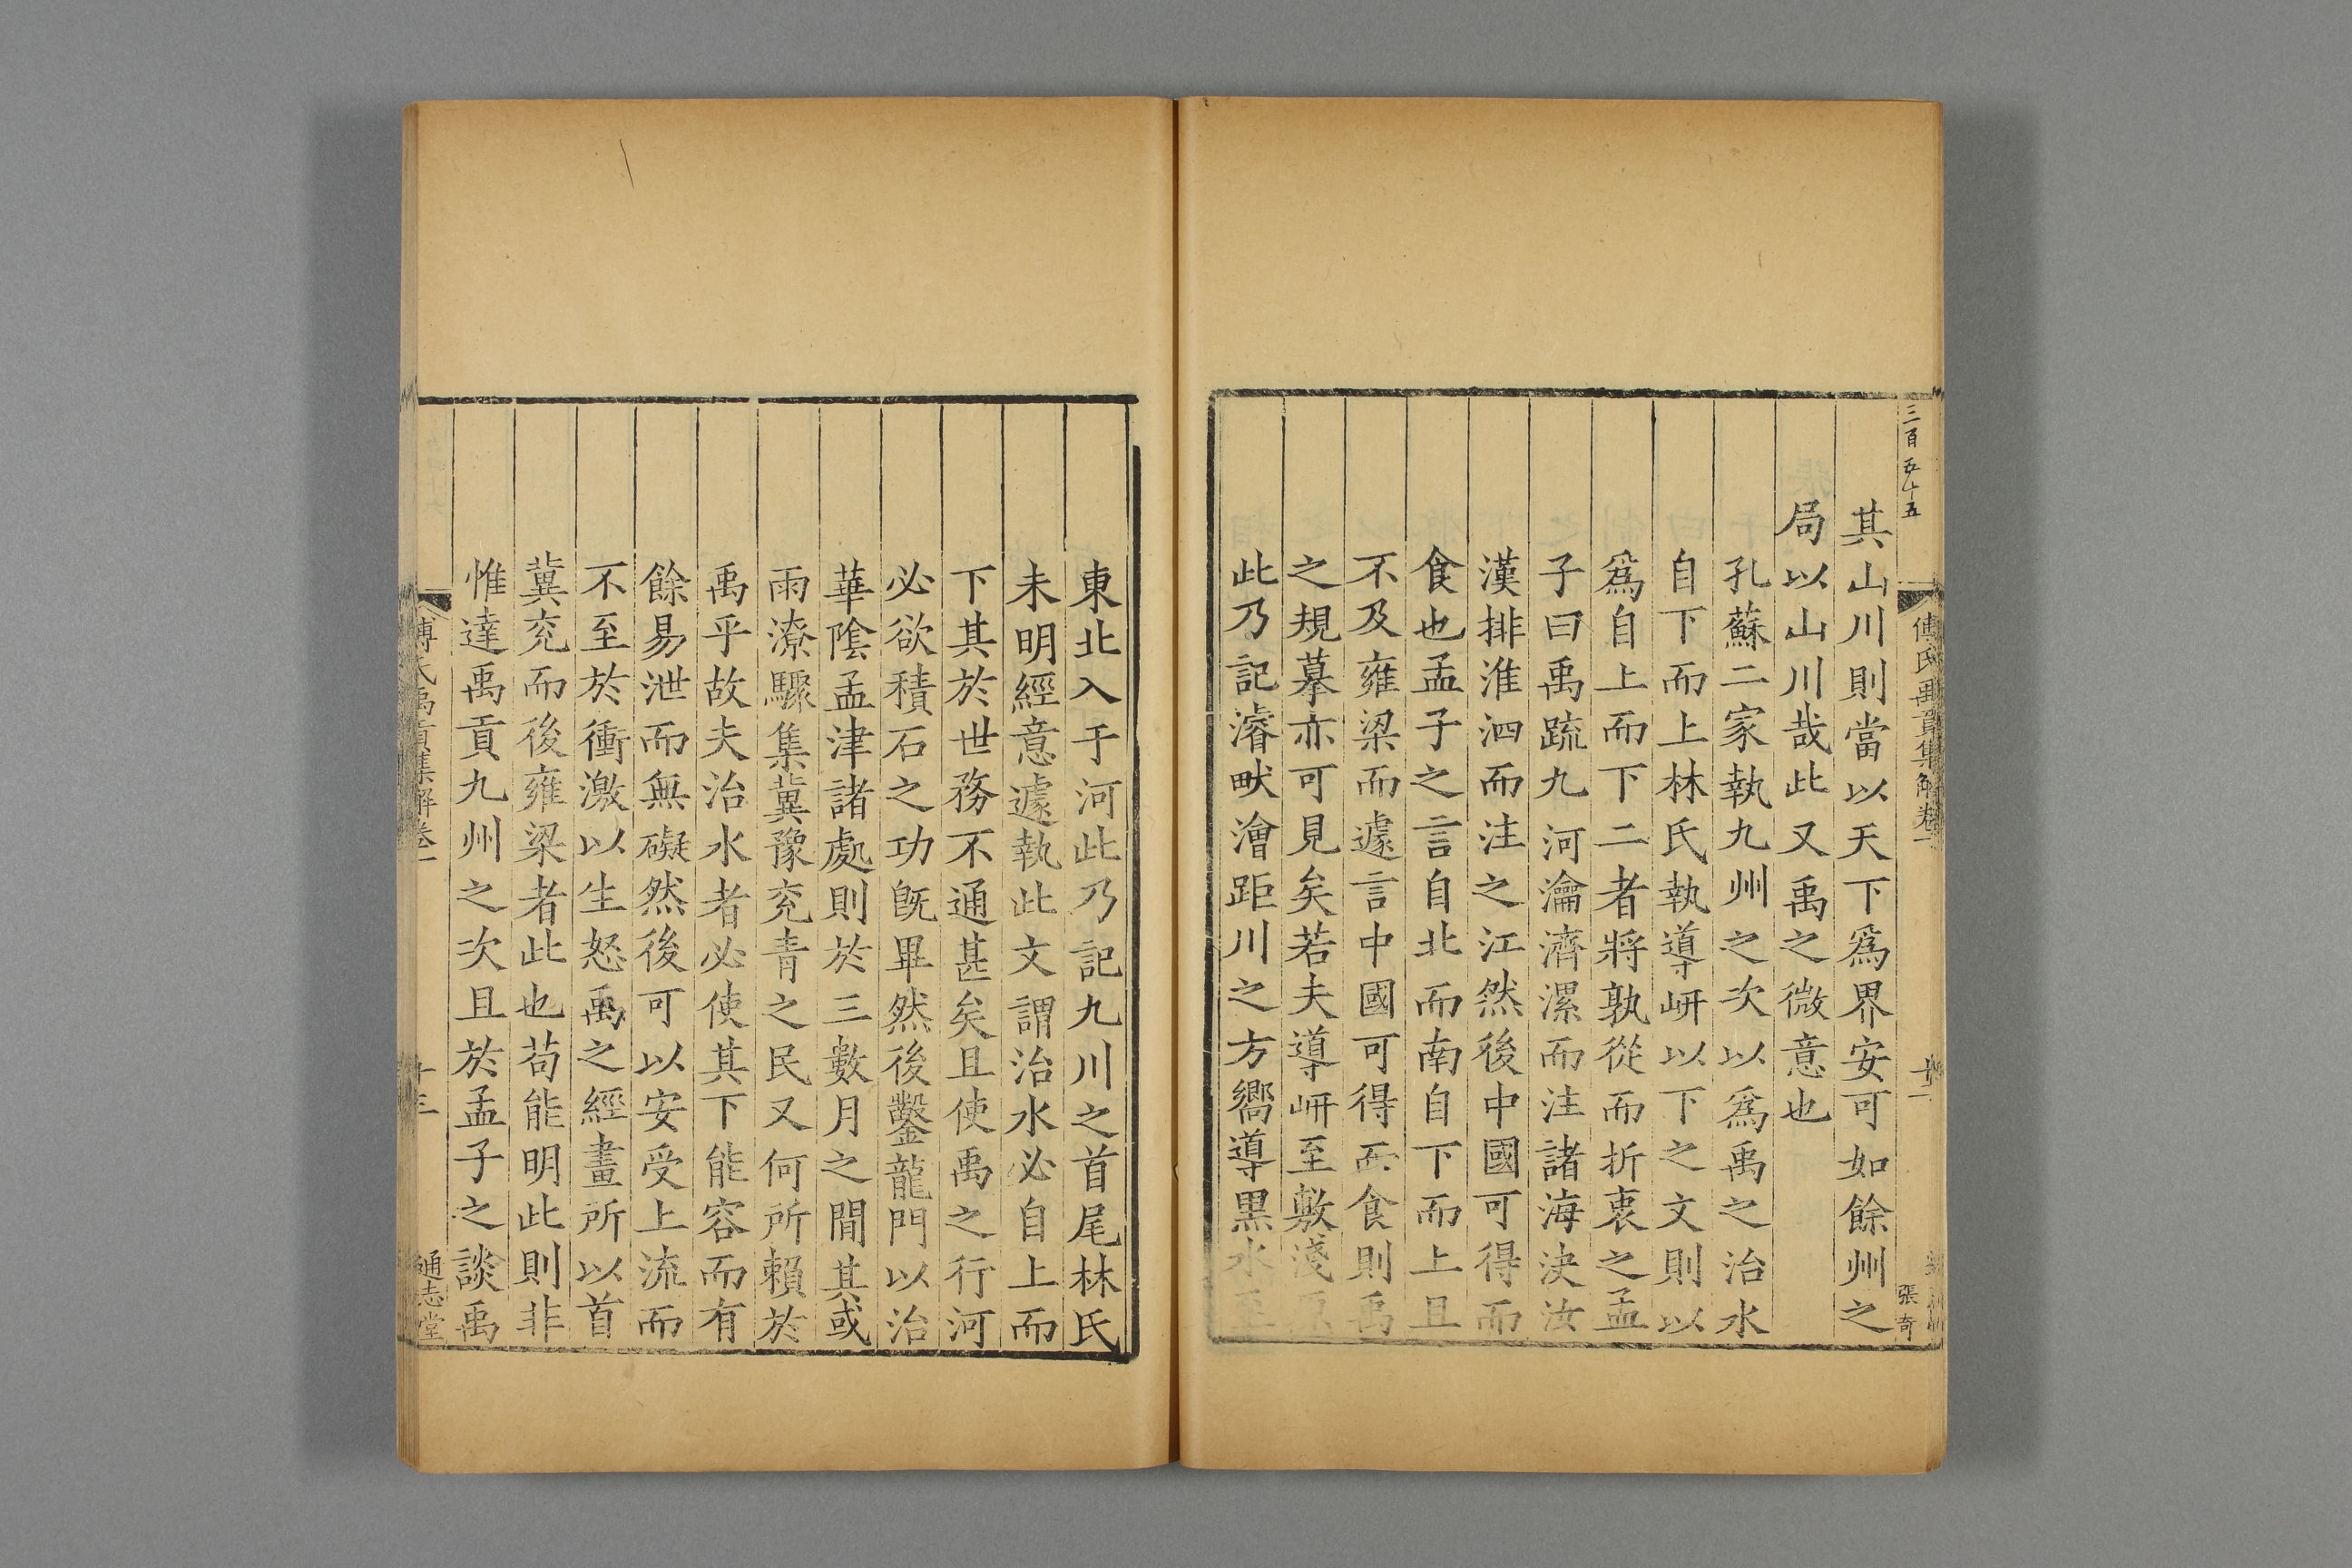 三百五十五
傅氏禹貢集解卷一
張奇
其山川則當以天下爲界安可如餘州之
局以山川哉此又禹之微意也
孔蘇二家執九州之次以爲禹之治水
自下而上林氏執導岍以下之文則以
爲自上而下二者將孰從而折衷之孟
子曰禹疏九河瀹濟漯而注諸海決汝
漢排淮泗而注之江然後中國可得而
食也孟子之言自北而南自下而上且
不及雍梁而遽言中國可得而食則禹
之規摹亦可見矣若夫導岍至敷淺原
此乃記濬畎澮距川之方嚮導黑水至
東北入于河此乃記九川之首尾林氏
未明經意遽執此文謂治水必自上而
下其於世務不通甚矣且使禹之行河
必欲積石之功旣畢然後鑿龍門以治
華陰孟津諸處則於三數月之間其或
雨潦驟集冀豫兖青之民又何所賴於
禹乎故夫治水者必使其下能容而有
餘易泄而無礙然後可以安受上流而
不至於衝激以生怒禹之經畫所以首
冀兖而後雍梁者此也苟能明此則非
惟達禹貢九州之次且於孟子之談禹
傅氏禹貢集解卷一
十三
通志堂